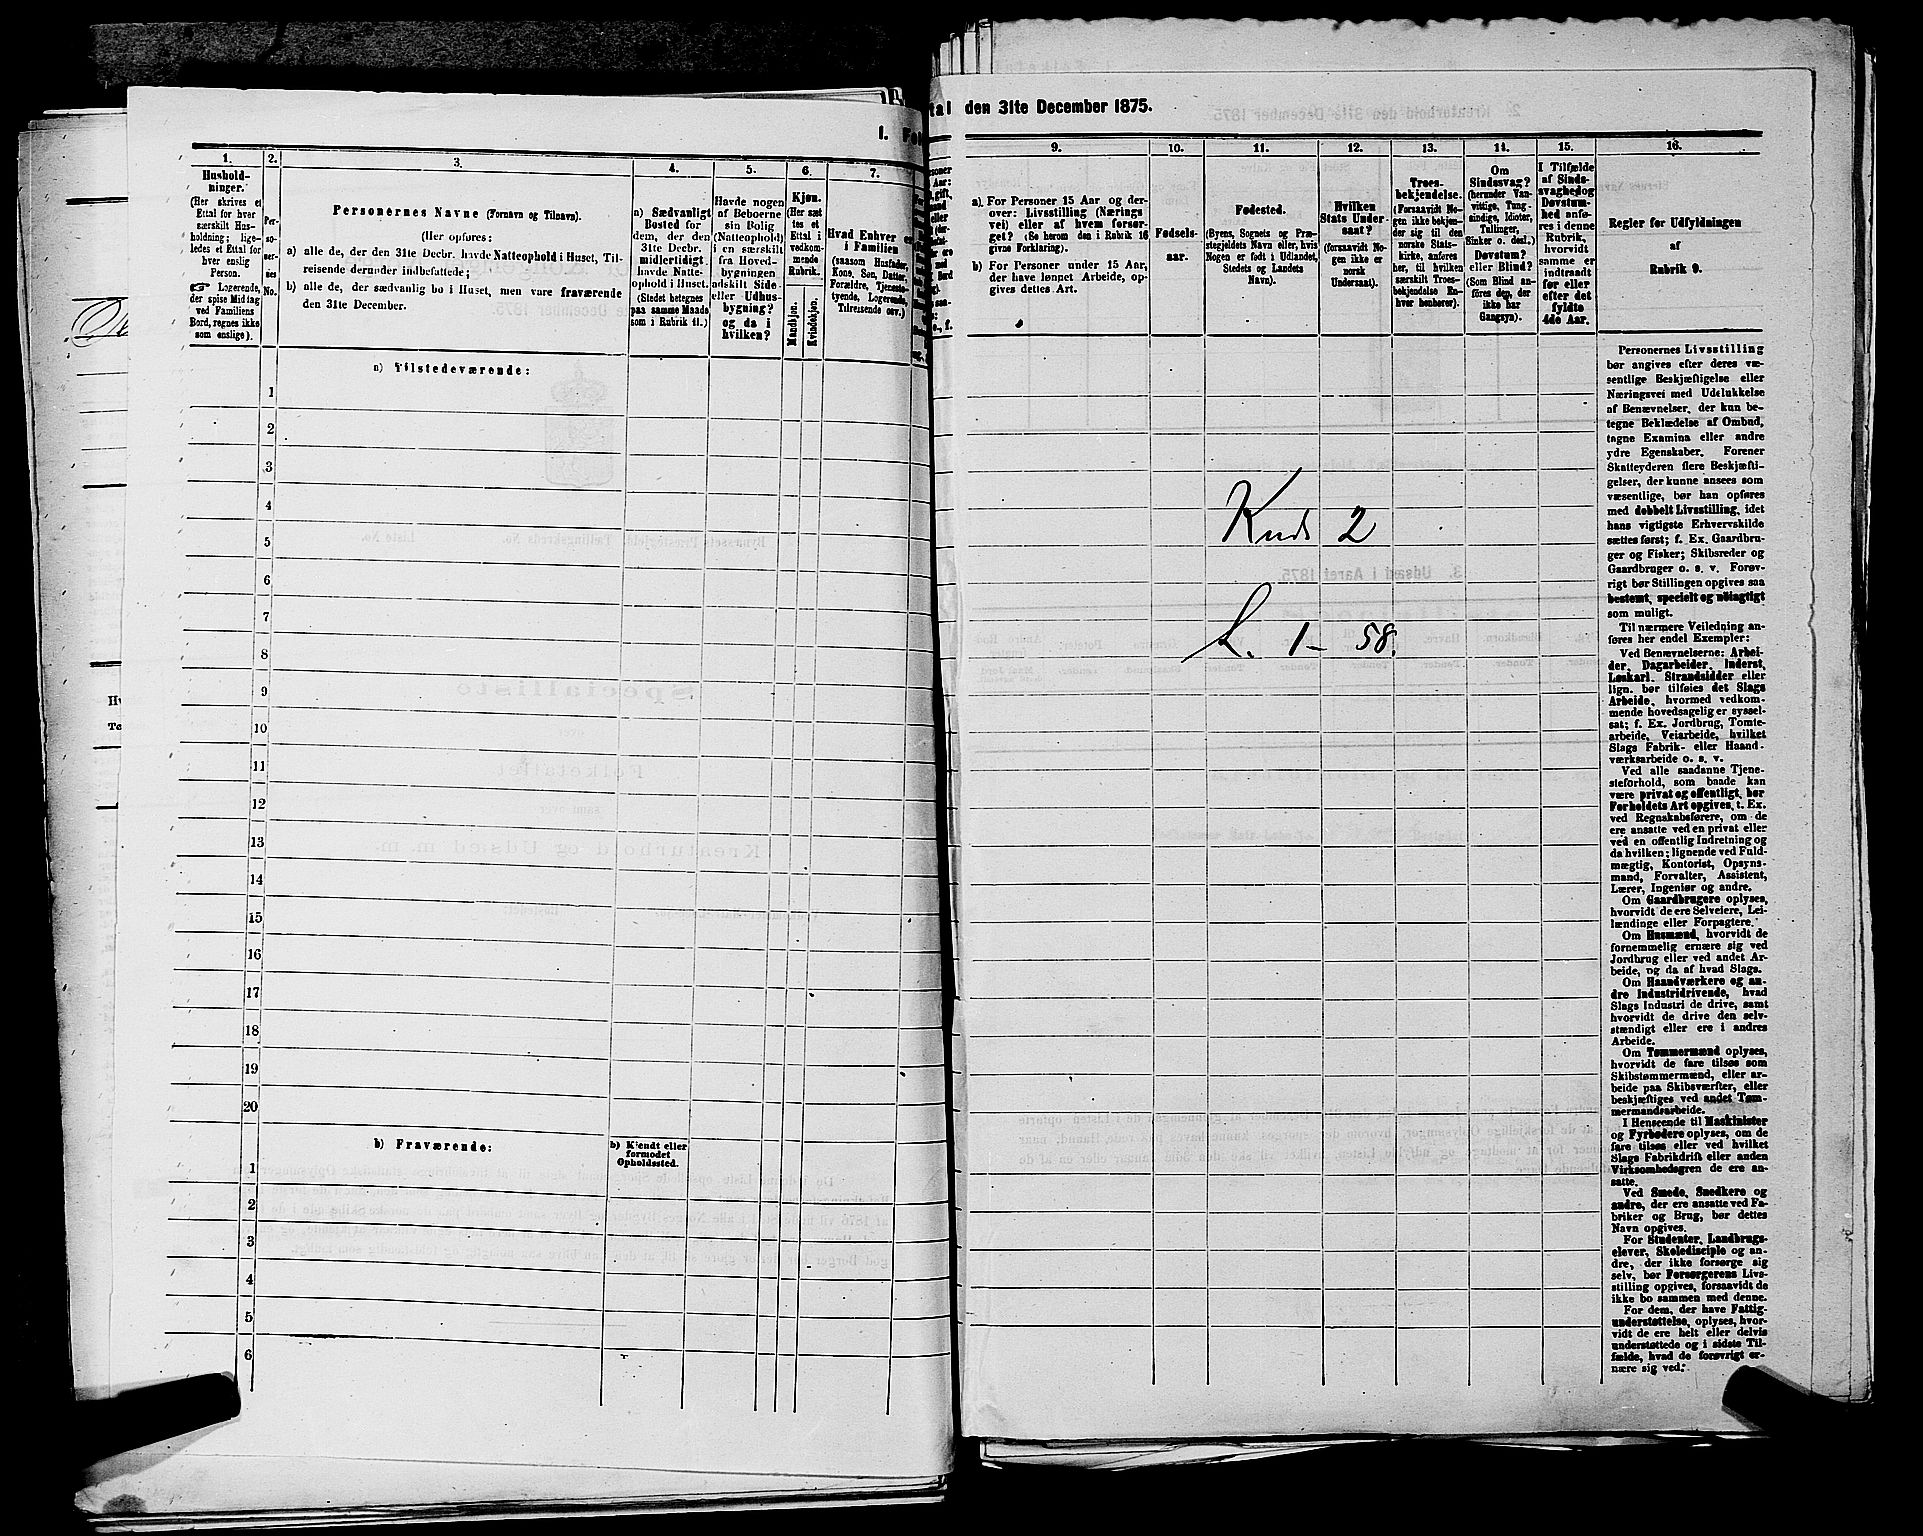 1. Fol
1.
Hushold-
ninger.
(Her skrives et
Ettal for hver
særskilt Hus-
holdning; lige-
ledes et Ettal for
hver enslig
Person.
☞ Logerende,
der spise Middag
ved Familiens
Bord, regnes ikke
som enslige).
2.
Per-
so-
ner-
nes
No.
3.
Personernes Navne (Fornavn og Tilnavn).
(Her opføres:
a) alle de, der den 31te Decbr. havde Natteophold i Huset, Til-
reisende derunder indbefattede;
b) alle de, der sædvanlig bo i Huset, men vare fraværende
den 31te December.
4.
a) Sædvanligt
Bosted for
dem, der den
31te Decbr.
midlertidigt
havde Natte-
ophold i Huset.
(Stedet betegnes
paa samme Maade
som i Rubrik 11.)
5.
Havde nogen
af Beboerne
sin Bolig
(Natteophold)
i en særskilt
fra Hoved-
bygningen
adskilt Side-
eller Udhus-
bygning?
og da i
hvilken?
6.
Kjøn.
(Her sæt
tes et
Ettal i
vedkom-
mende
Rubrik.
Mandkjøn.
Kvindekjøn.
7.
Hvad Enhver er
i Familien
(saasom Husfader,
Kone, Søn, Datter,
Forældre, Tjeneste-
tyende, Logerende,
Tilreisende osv.)
a) Tilstedeværende:
1
2
3
4
5
6
7
8
9
10
11
12
13
14
15
16
17
18
19
20
b) Fraværende:
b) Kjendt eller
formodet
Opholdssted.
1
2
3
4
5
6
tal den 31te December 1875.
9.
a). For Personer 15 Aar og der-
over: Livsstilling (Nærings
vei) eller af hvem forsør-
get? (Se herom den i Rubrik 16
givne Forklaring).
b) For Personer under 15 Aar,
der have lønnet Arbeide, op-
gives dettes Art.
10.
Fødsels-
aar.
11.
Fødested.
(Byens, Sognets og Præ-
stegjeldets Navn eller, hvis
Nogen er født i Udlandet,
Stedets og Landets
Navn).
12.
Hvilken
Stats Under-
saat?
(forsaavidt No-
gen ikke er
norsk
Undersaat).
13.
Troes-
bekjendelse.
(Forsaavidt No-
gen ikke bekjen-
der sig til den
norske Stats-
kirke, anføres
her, til hvilken
særskilt Troes-
bekjendelse En-
hver henhører).
14.
Om
Sindssvag?
(herunder Van-
vittige, Tung-
sindige, Idioter,
Tullinger,
Sinker o. desl.).
Døvstum?
eller Blind?
(Som Blind an-
føres den, der
ikke har
Gangsyn).
15.
I Tilfælde
af Sinds-
svaghed og
Døvstum-
hed anfø-
res i denne
Rubrik,
hvorvidt
samme er
indtraadt
før eller
efter det
fyldte
4de Aar.
16.
Regler før Udfyldningen
af
Rubrik 9.
Knds 2
L. 1 – 58.
Personernes Livsstilling
bør angives efter deres væ-
sentlige Beskjæftigelse eller
Næringsvei med Udelukkelse
af Benævnelser, der kun be-
tegne Beklædelse af Ombud,
tagne Examina eller andre
ydre Egenskaber. Forener
Skatteyderen flere Beskjæfti-
gelser, der kunne ansees som
væsentlige, bør han opføres
med dobbelt Livsstilling, idet
hans vigtigste Erhvervskilde
sættes først; f. Ex. Gaardbru-
ger og Fisker; Skibsreder og
Gaardbruger o. s. v. Forøv-
rigt bør Stillingen opgives saa
bestemt, specielt og nøiagtigt
som muligt.
Til nærmere Veiledning an-
føres her endel Exempler:
Ved Benævnelserne: Arbei-
der, Dagarbeider, Inderst,
Løskarl, Strandsidder eller
lign. bør tilføies det Slags
Arbeide, hvormed vedkom-
mende hovedsagelig er syssel-
sat; f. Ex. Jordbrug, Tomte-
arbeide, Veiarbeide, hvilket
Slags Fabrik- eller Haand-
værksarbeide o. s. v.
Ved alle saadanne Tjene-
steforhold, som baade kan
være privat og offentligt, bør
Forholdets Art opgives, t. Ex.
ved Regnskabsførere, om de
ere ansatte ved en privat eller
ved en offentlig Indretning og
da hvilken; lignende ved Fuld-
mægtig, Kontorist, Opsyns-
mand, Forvalter, Assistent,
Lærer, Ingeniør og andre.
Om Gaardbrugere oplyses,
hvorvidt de ere Selveiere, Lei-
lændinge eller Forpagtere.
Om Husmænd, hvorvidt de
fornemmelig ernære sig ved
Jordbrug eller ved andet Ar-
beide, og da af hvad Slags.
Om Haandværkere og an-
dre Industridrivende, hvad
Slags Industri de drive, samt
hvorvidt de drive den selv-
stændigt eller ere i andres
Arbeide.
Om Tømmermænd oplyses,
hvorvidt de fare tilsøs som
Skibstømmermænd, eller ar-
beide paa Skibsværfter, eller
beskjæftiges ved andet Tøm-
mermandsarbeide.
I Henseende til Maskinister
og Fyrbødere oplyses, om de
fare tilsøs eller ved hvilket
Slags Fabrikdrift eller anden
Virksomhedsgren de ere an-
satte.
Ved Smede, Snedkere og
andre, der ere ansatte ved Fa-
briker og Brug, bør dettes
Navn opgives.
For Studenter, Landbrugs-
elever, Skoledisciple og an-
dre, der ikke forsørge sig
selv, bør Forsørgerens Livs-
stilling opgives, forsaavidt de
ikke bo sammen med denne.
For dem, der have Fattig-
understøttelse, oplyses, hvor-
vidt de ere helt eller delvis
understøttede og i sidste Til-
fælde, hvad de forøvrigt er-
nære sig ved.